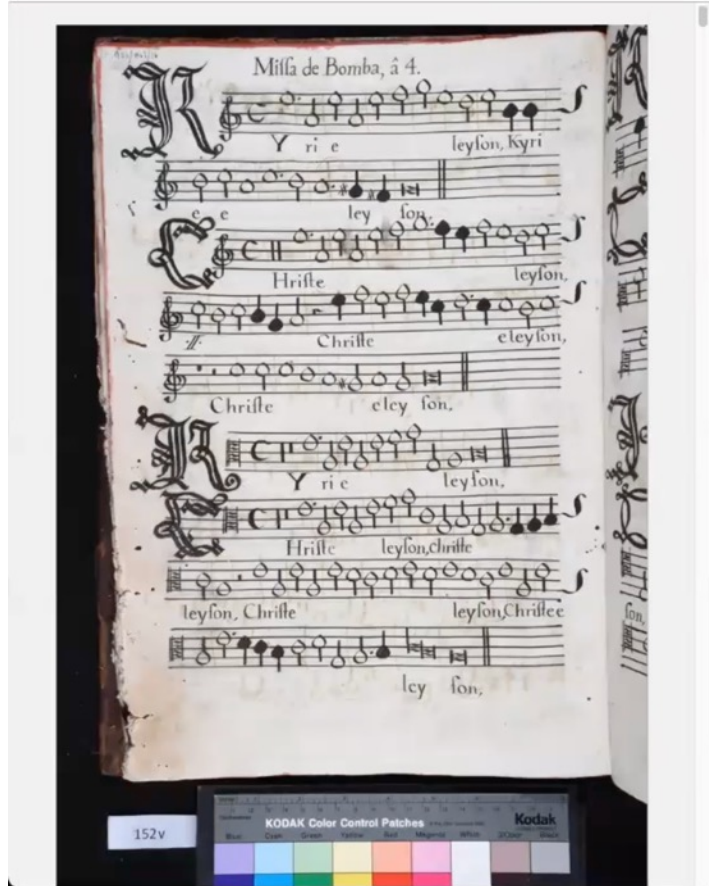 Miſſa de Bomba, â 4.
KYrie leyſon, Kyri
e e ley ſon,
CHriſte leyſon,
:// Chriſte eleyſon,
Chriſte eley ſon,
KYrie leyſon,
CHriſte leyſon, chriſte
leyſon, Chriſte leyſon, Chriſtee
ley ſon,
ſon,
152v
KODAK Color Control Patches
Kodak
Blue Cyan Green Yellow Red Magenta White 3/Color Black